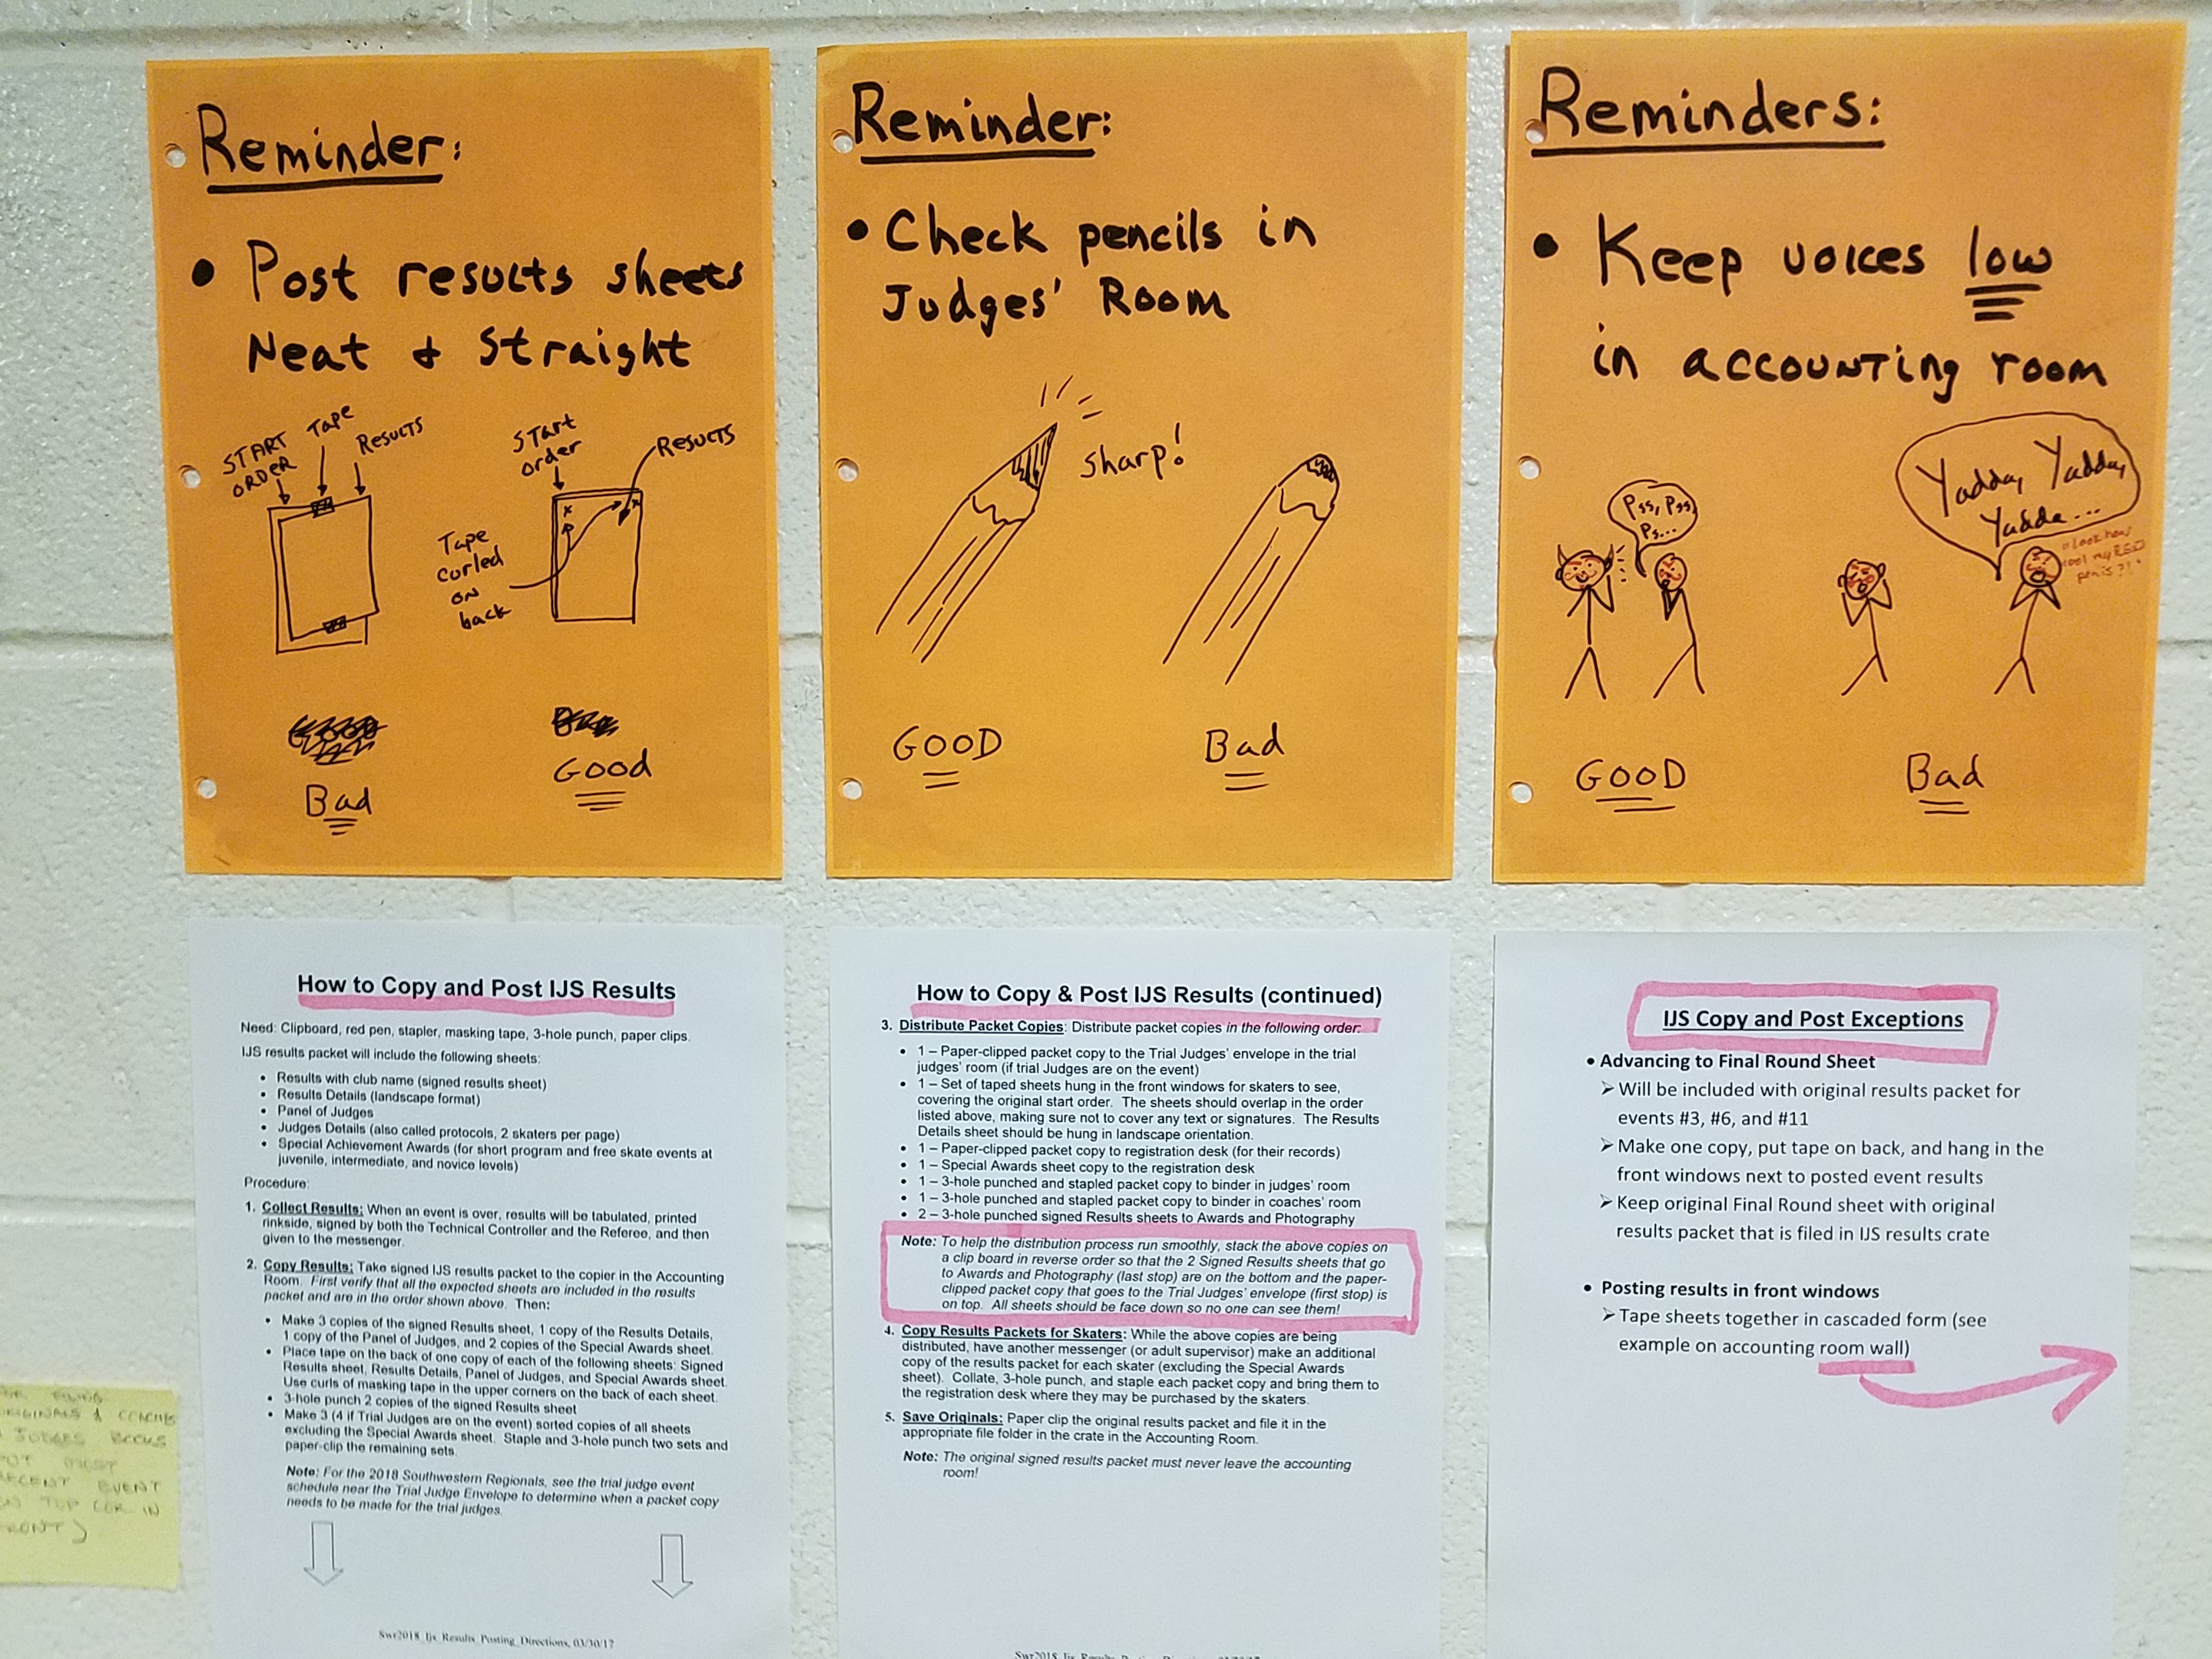 Reminder:
• Post results sheets
Neat & Straight
START
ORDER
Tape
Results
Start
order
Results
Tape
curled
on
back
Bad
Good
Reminder:
• Check pencils in
Judges' Room
sharp!
GOOD
Bad
Reminders:
• Keep voices low
in accounting room
Pss, Pss,
Ps...
Yadda, Yadda,
Yadda...
GOOD
Bad
How to Copy and Post IJS Results
Need: Clipboard, red pen, stapler, masking tape, 3-hole punch, paper clips.
IJS results packet will include the following sheets:
• Results with club name (signed results sheet)
• Results Details (landscape format)
• Panel of Judges
• Judges Details (also called protocols, 2 skaters per page)
• Special Achievement Awards (for short program and free skate events at
juvenile, intermediate, and novice levels)
Procedure:
1. Collect Results: When an event is over, results will be tabulated, printed
rinkside, signed by both the Technical Controller and the Referee, and then
given to the messenger.
2. Copy Results: Take signed IJS results packet to the copier in the Accounting
Room. First verify that all the expected sheets are included in the results
packet and are in the order shown above. Then:
• Make 3 copies of the signed Results sheet, 1 copy of the Results Details,
1 copy of the Panel of Judges, and 2 copies of the Special Awards sheet.
• Place tape on the back of one copy of each of the following sheets: Signed
Results sheet, Results Details, Panel of Judges, and Special Awards sheet.
Use curls of masking tape in the upper corners on the back of each sheet.
• 3-hole punch 2 copies of the signed Results sheet
• Make 3 (4 if Trial Judges are on the event) sorted copies of all sheets
excluding the Special Awards sheet. Staple and 3-hole punch two sets and
paper-clip the remaining sets.
Note: For the 2018 Southwestern Regionals, see the trial judge event
schedule near the Trial Judge Envelope to determine when a packet copy
needs to be made for the trial judges.
Swr2018_Ijs_Results_Posting_Directions, 03/30/17
How to Copy & Post IJS Results (continued)
3. Distribute Packet Copies: Distribute packet copies in the following order:
• 1 – Paper-clipped packet copy to the Trial Judges' envelope in the trial
judges' room (if trial Judges are on the event)
• 1 – Set of taped sheets hung in the front windows for skaters to see,
covering the original start order. The sheets should overlap in the order
listed above, making sure not to cover any text or signatures. The Results
Details sheet should be hung in landscape orientation.
• 1 – Paper-clipped packet copy to registration desk (for their records)
• 1 – Special Awards sheet copy to the registration desk
• 1 – 3-hole punched and stapled packet copy to binder in judges' room
• 1 – 3-hole punched and stapled packet copy to binder in coaches' room
• 2 – 3-hole punched signed Results sheets to Awards and Photography
Note: To help the distribution process run smoothly, stack the above copies on
a clip board in reverse order so that the 2 Signed Results sheets that go
to Awards and Photography (last stop) are on the bottom and the paper-
clipped packet copy that goes to the Trial Judges' envelope (first stop) is
on top. All sheets should be face down so no one can see them!
4. Copy Results Packets for Skaters: While the above copies are being
distributed, have another messenger (or adult supervisor) make an additional
copy of the results packet for each skater (excluding the Special Awards
sheet). Collate, 3-hole punch, and staple each packet copy and bring them to
the registration desk where they may be purchased by the skaters.
5. Save Originals: Paper clip the original results packet and file it in the
appropriate file folder in the crate in the Accounting Room.
Note: The original signed results packet must never leave the accounting
room!
IJS Copy and Post Exceptions
• Advancing to Final Round Sheet
➢ Will be included with original results packet for
events #3, #6, and #11
➢ Make one copy, put tape on back, and hang in the
front windows next to posted event results
➢ Keep original Final Round sheet with original
results packet that is filed in IJS results crate
• Posting results in front windows
➢ Tape sheets together in cascaded form (see
example on accounting room wall)
FILING
& COACHES
JUDGES BOOKS
MOST
RECENT EVENT
ON TOP (OR IN
FRONT)